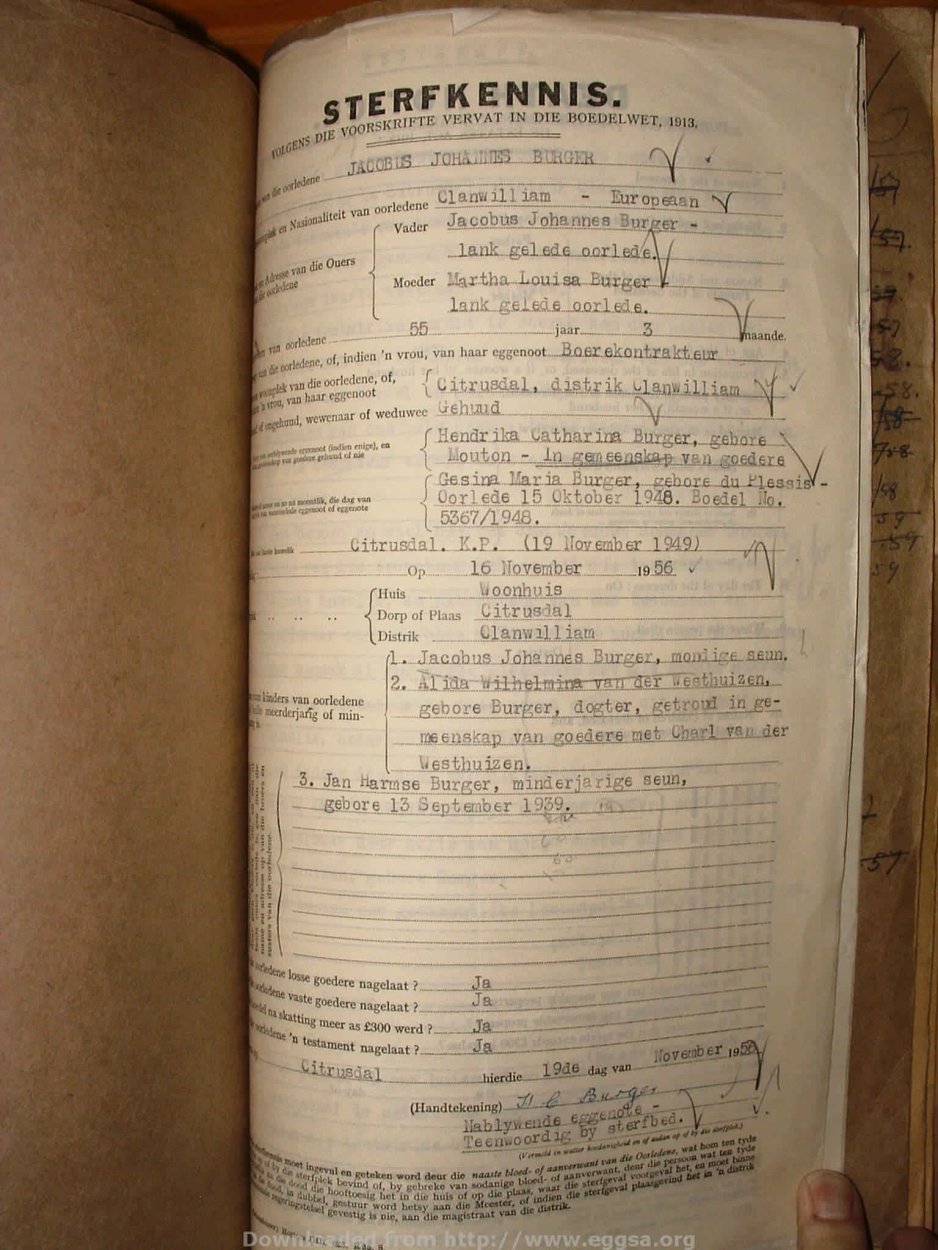 STERFKENNIS.
VOLGENS DIE VOORSKRIFTE VERVAT IN DIE BOEDELWET, 1913.
van die oorledene JACOBUS JOHANNES BURGER
en Nasionaliteit van oorledene Clanwilliam - Europeaan
Vader Jacobus Johannes Burger -
lank gelede oorlede.
Adresse van die Ouers
die oorledene
Moeder Martha Louisa Burger
lank gelede oorlede.
van oorledene 55 jaar 3 maande.
van die oorledene, of, indien 'n vrou, van haar eggenoot Boerekontrakteur
woonplek van die oorledene, of,
'n vrou, van haar eggenoot
Citrusdal, distrik Clanwilliam
of ongehuud, wewenaar of weduwee Gehuud
Hendrika Catharina Burger, gebore
Mouton - In gemeenskap van goedere
Gesina Maria Burger, gebore du Plessis -
Oorlede 15 Oktober 1948. Boedel No.
5367/1948.
Citrusdal. K.P. (19 November 1949)
Op 16 November 1956
Huis Woonhuis
Dorp of Plaas Citrusdal
Distrik Clanwilliam
1. Jacobus Johannes Burger, mondige seun.
2. Alida Wilhelmina van der Westhuizen,
kinders van oorledene
meerderjarig of min-
gebore Burger, dogter, getroud in ge-
meenskap van goedere met Charl van der
Westhuizen.
3. Jan Harmse Burger, minderjarige seun,
gebore 13 September 1939.
oorledene losse goedere nagelaat ? Ja
oorledene vaste goedere nagelaat ? Ja
na skatting meer as £300 werd ? Ja
oorledene 'n testament nagelaat ? Ja
Citrusdal hierdie 19de dag van November 1956
(Handtekening) H C Burger
Nablywende eggenote -
Teenwoordig by sterfbed.
moet ingevul en geteken word deur die naaste bloed- of aanverwant van die Oorledene, wat hom ten tyde
Downloaded from http://www.eggsa.org